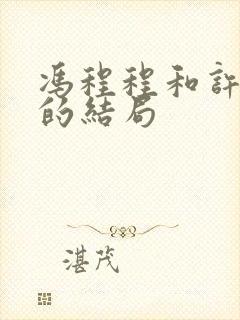 馮程程和許
的結局
湛茂